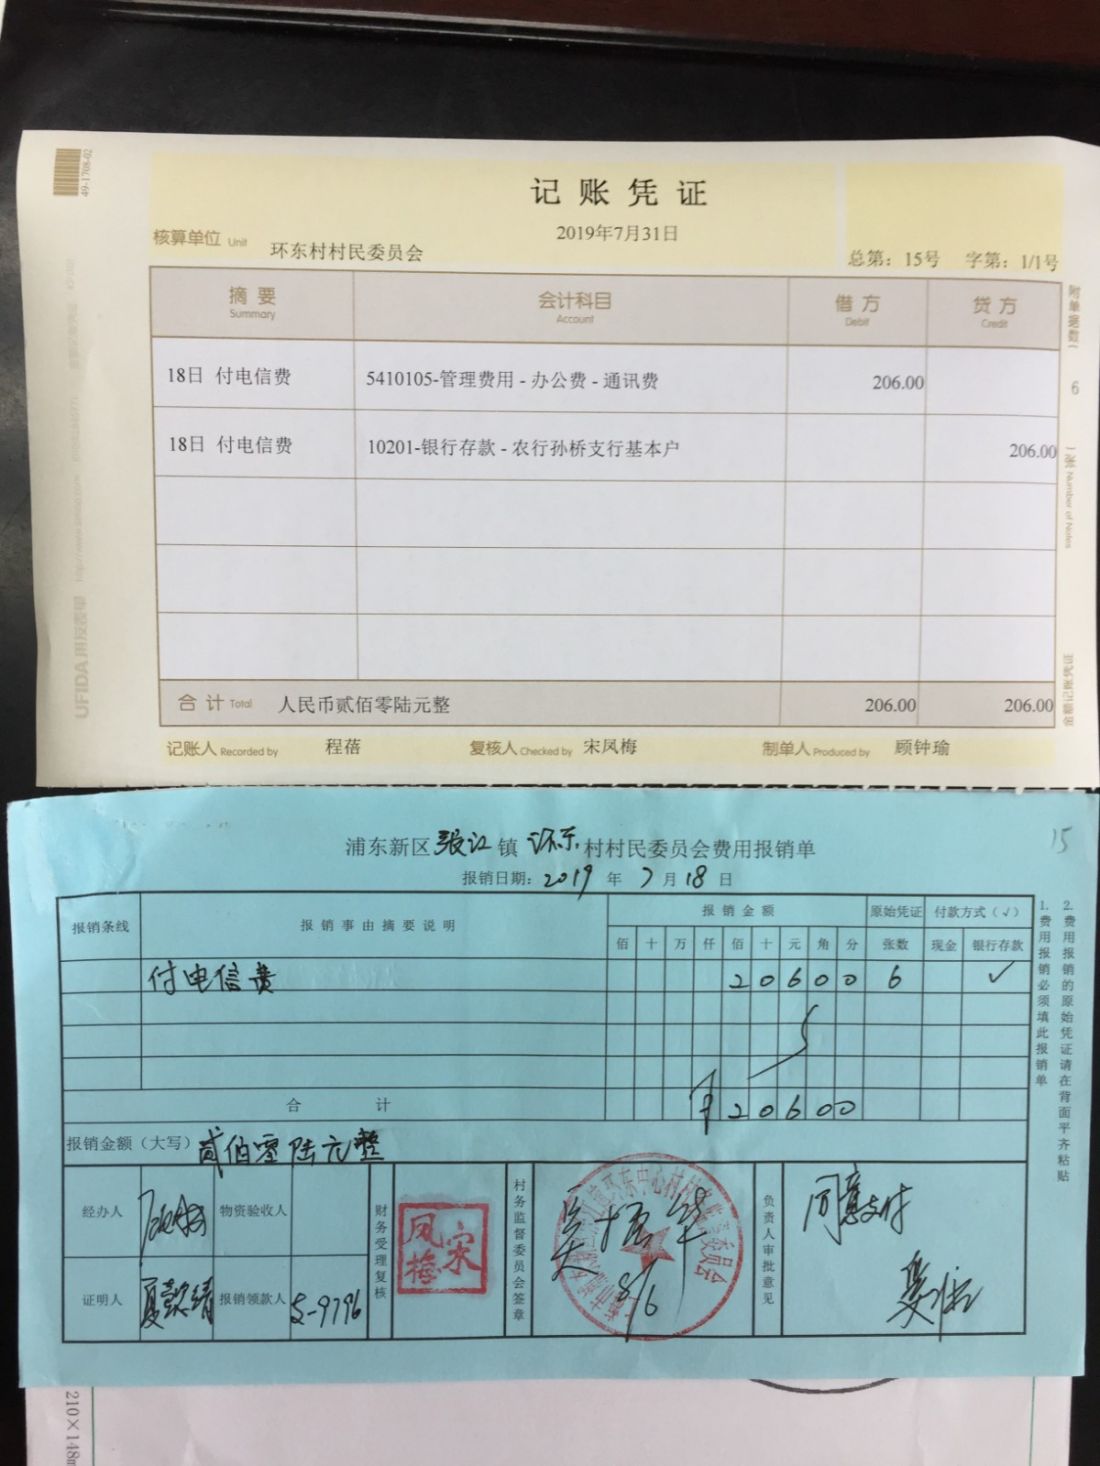 49-1708-02
记账凭证
2019年7月31日
核算单位 Unit 环东村村民委员会
总第：15号 字第：1/1号
摘要 会计科目 借方 贷方
Summary Account Debit Credit
18日 付电信费 5410105-管理费用 - 办公费 - 通讯费 206.00
18日 付电信费 10201-银行存款 - 农行孙桥支行基本户 206.00
合计 Total 人民币贰佰零陆元整 206.00 206.00
记账人 Recorded by 程蓓 复核人 Checked by 宋凤梅 制单人 Produced by 顾钟瑜
附单据数（ 6 张）
金额记账凭证
UFIDA 用友表单
15
浦东新区张江镇环东村村民委员会费用报销单
报销日期：2019年7月18日
报销条线 报销事由摘要说明 报销金额 原始凭证 付款方式（√）
佰 十 万 仟 佰 十 元 角 分 张数 现金 银行存款
付电信费 2 0 6 0 0 6 ✓
合计 ¥ 2 0 6 0 0
报销金额（大写）贰佰零陆元整
经办人 物资验收人
证明人 夏懿靖 报销领款人 5-9796
财务受理复核
宋凤梅
村务监督委员会签章
8/6
负责人审批意见
同意支付
1.费用报销必须填此报销单
2.费用报销的原始凭证请在背面平齐粘贴
210×148m